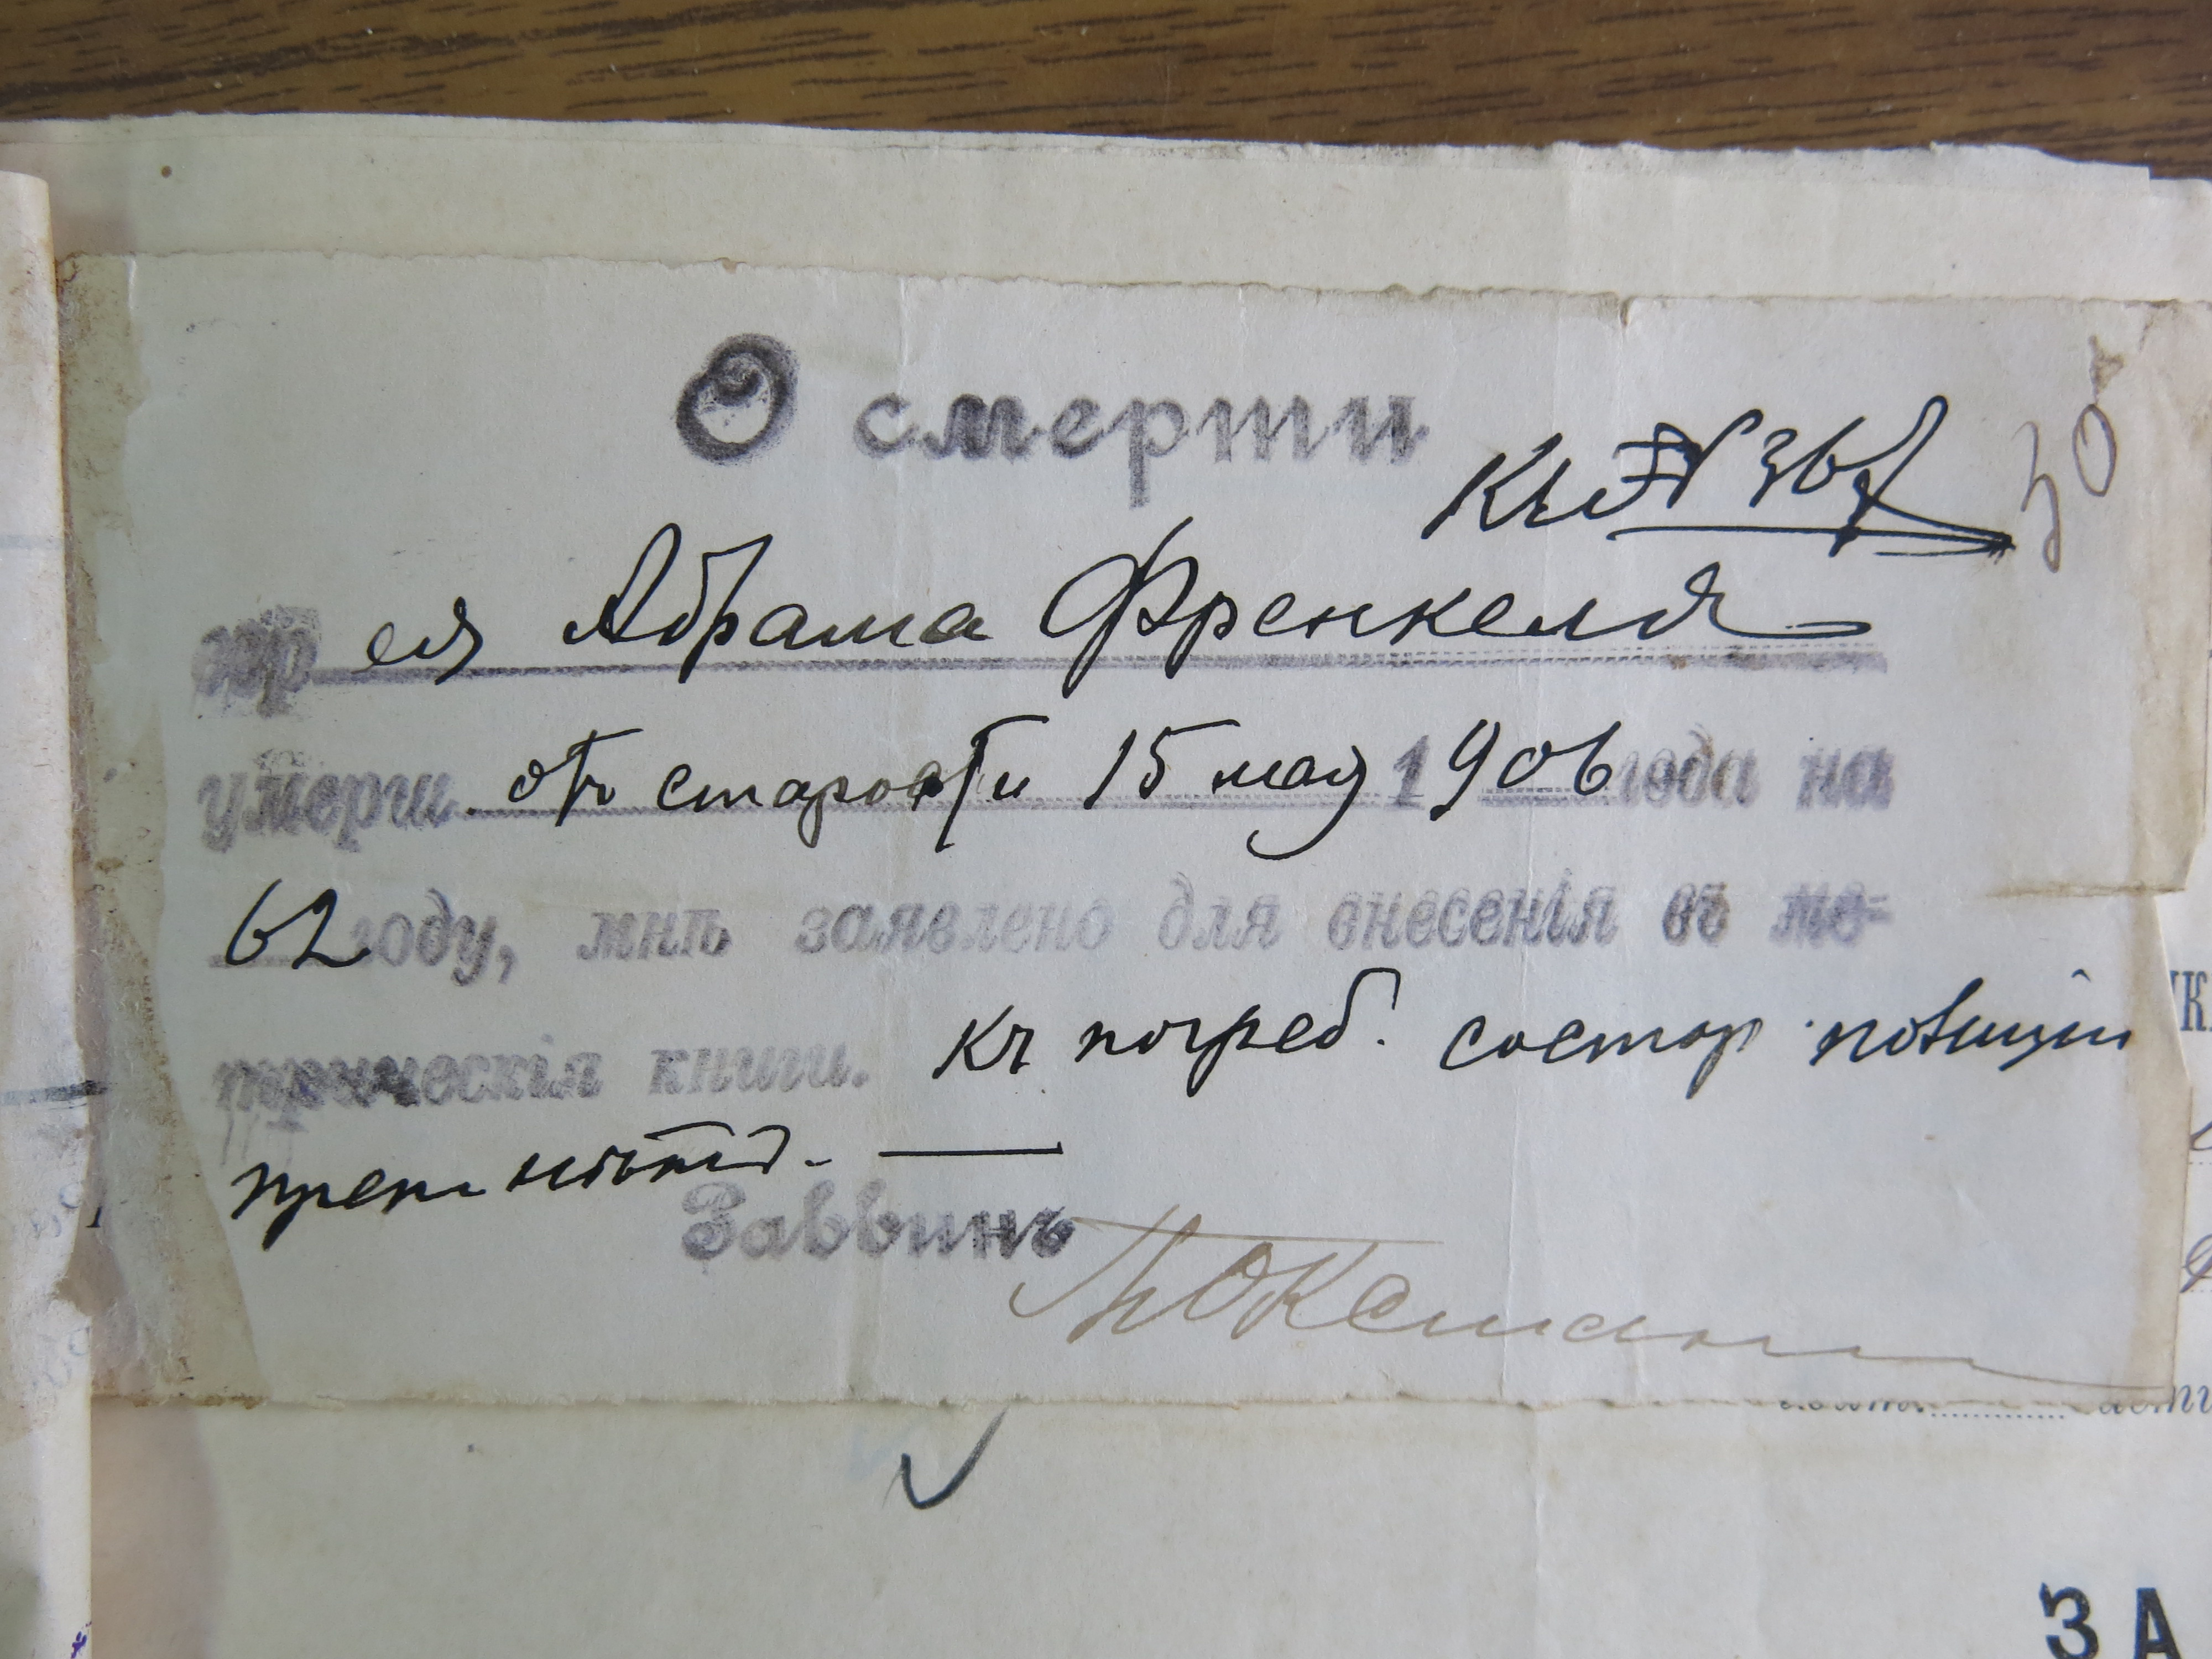 О смерти
Къ № 36
30
евр ея Абрама Френкеля
умерш. отъ старости 15 мая 1906 года на
62 году, мнѣ заявлено для внесенія въ ме-
трическія книги. Къ погреб. состор полиціи
препятств. —
Раввинъ
ЗА